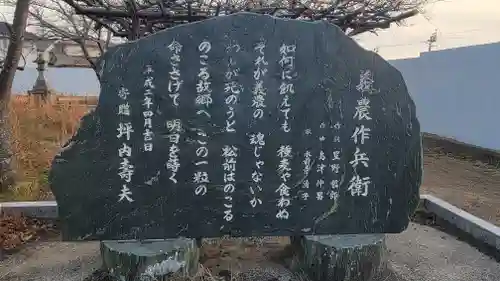 義農作兵衛
作詞 星野哲郎
作曲 島津伸男
歌
如何に飢えても 種麦や食わぬ
それが義農の 魂じゃないか
うしが死のうと 松前はのこる
のこる故郷へ この一粒の
命ささげて 明日を蒔く
平成五年四月吉日
寄贈 坪内寿夫